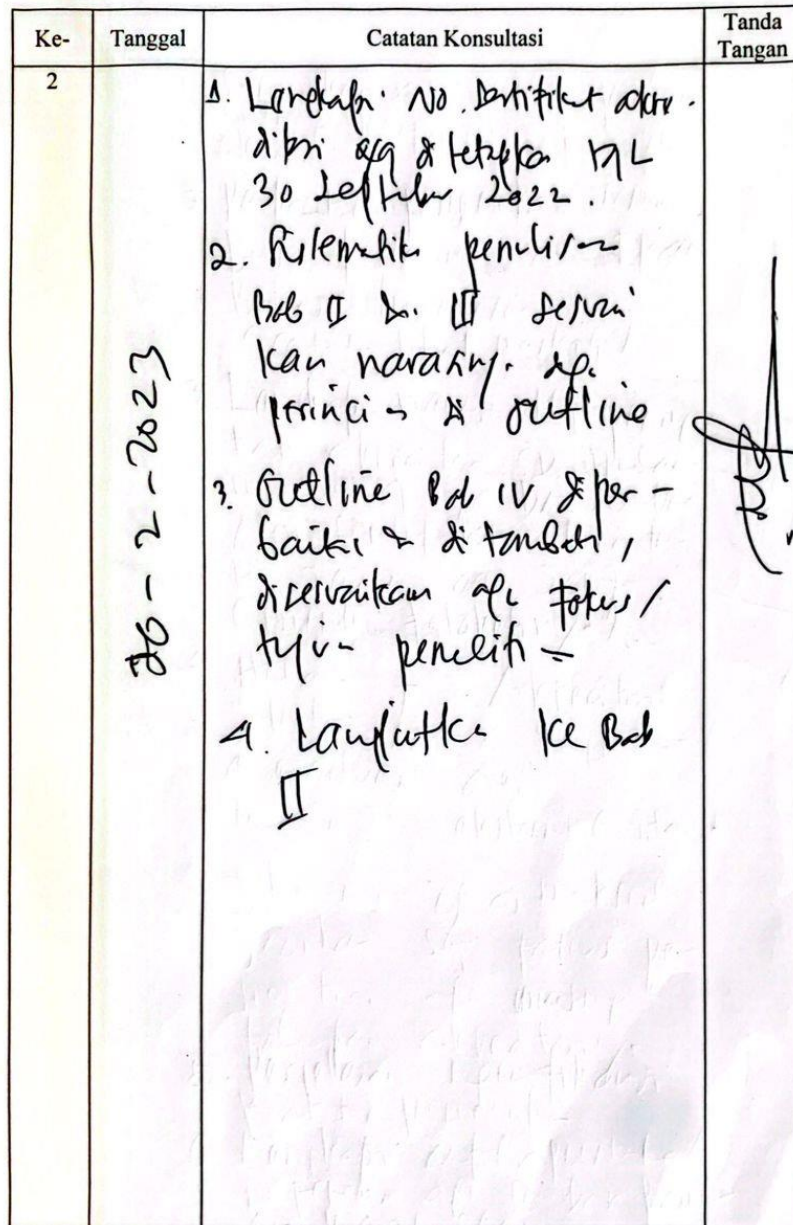 Ke- Tanggal Catatan Konsultasi Tanda Tangan
2
1. Lengkapi No. Sertifikat akre-
ditasi yg ditetapkan tgl
30 September 2022.
2. Sistematika penulisan
Bab II III sesuai
kan narasiny. dg.
perinci di outline
3. Outline Bab IV diper-
baiki & ditambah,
disesuaikan dg fokus/
peneliti
4. Lanjutka ke Bab
II
2-2023